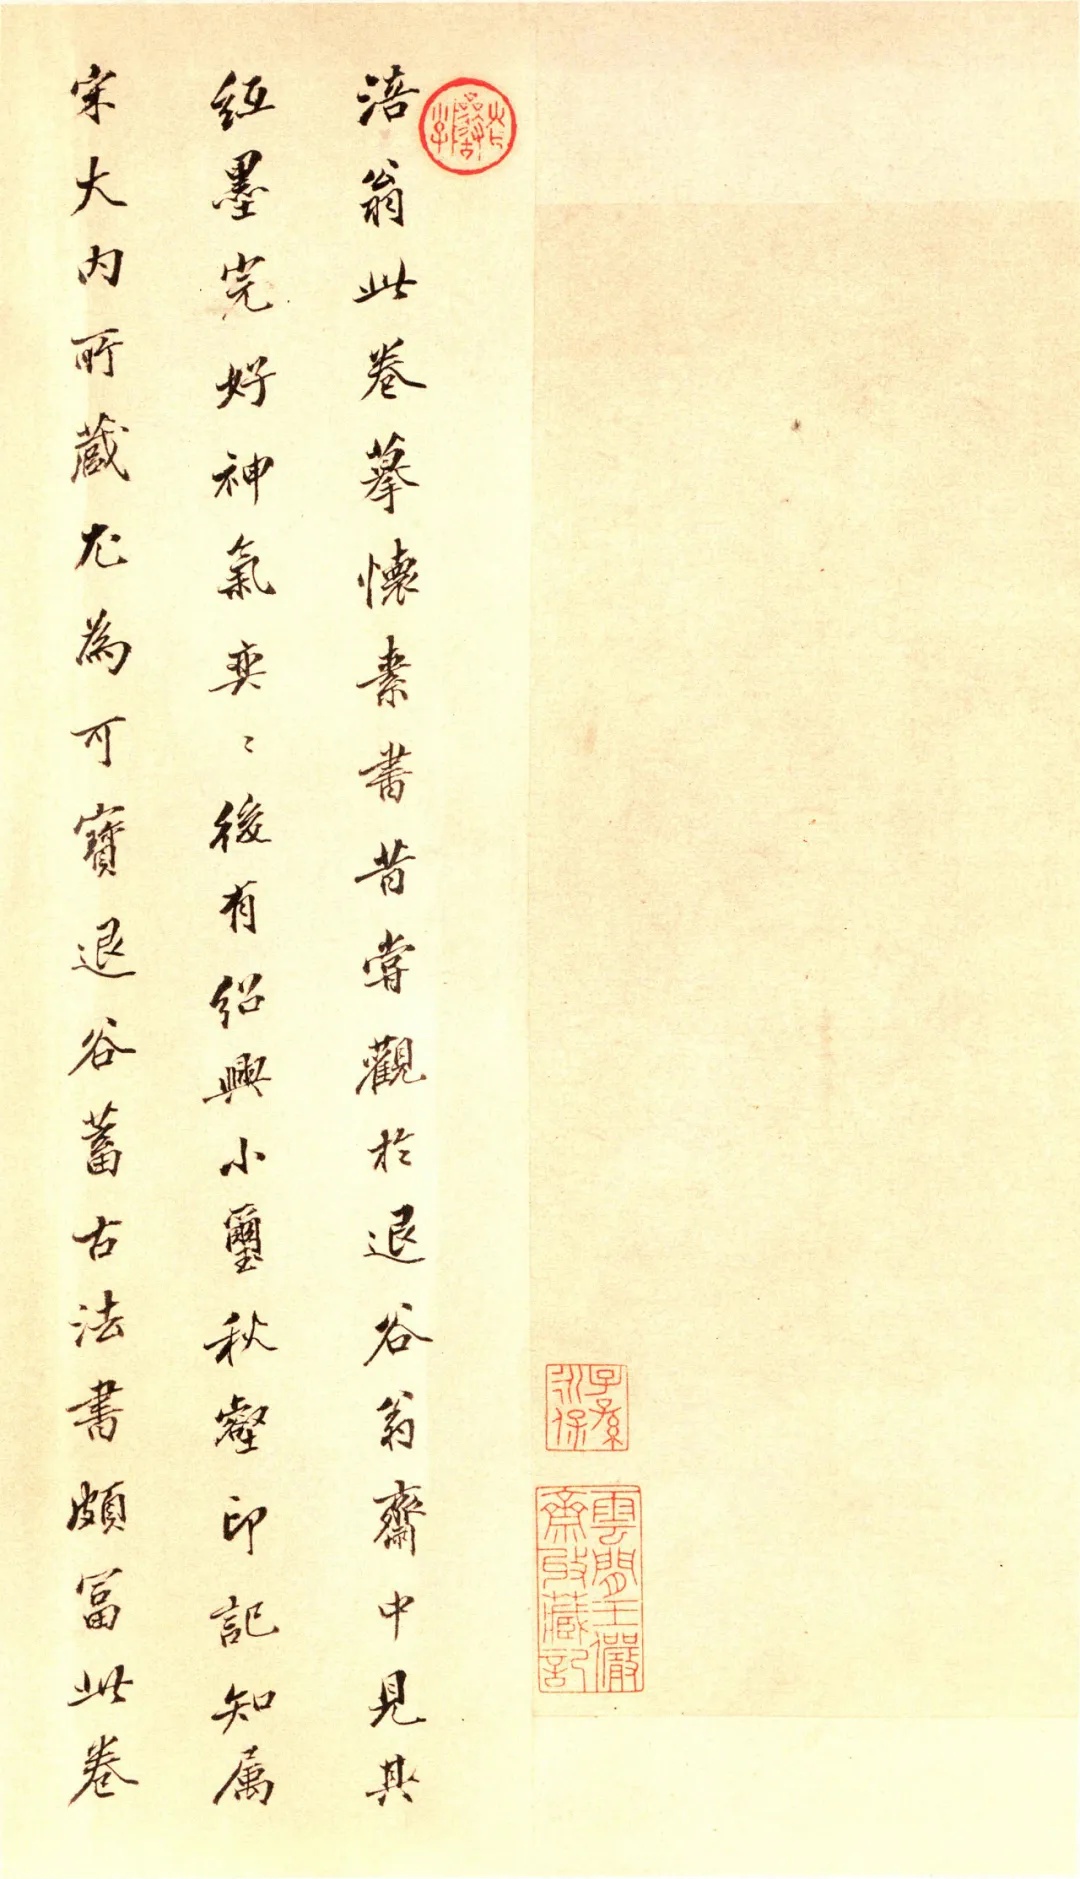 涪翁此卷摹懷素書昔嘗觀於退谷翁齋中見其
紙墨完好神氣奕〻後有紹興小璽秋壑印記知属
宋大内所蔵尤為可寶退谷蓄古法書頗富此卷
子孫
永保
雲間王儼
齋收藏記